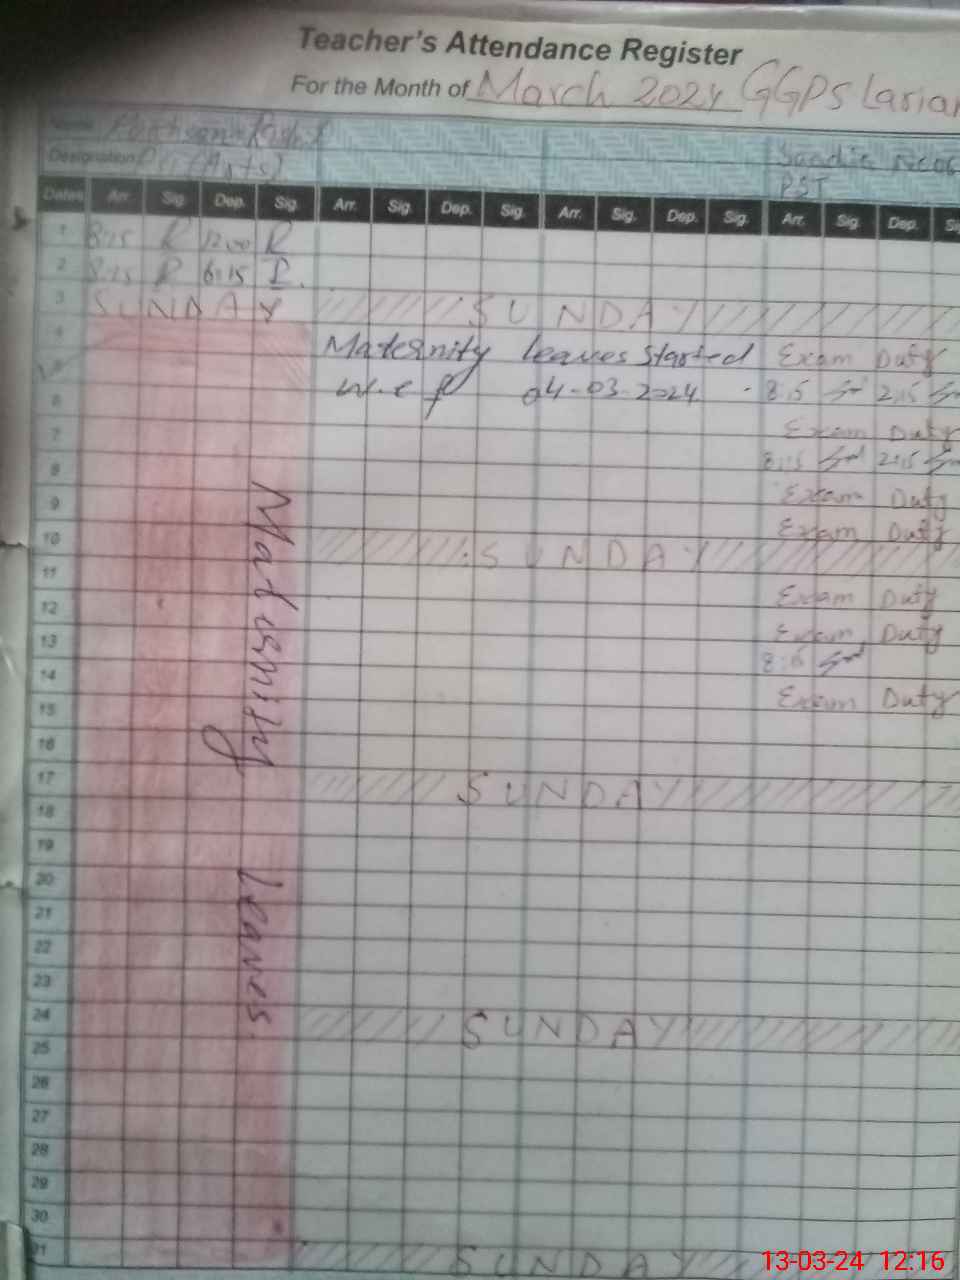 Teacher's Attendance Register
For the Month of March 2024 GGPS Larian
Name
Designation (Arts)
PST
Dates Arr. Sig. Dep. Sig. Arr. Sig. Dep. Sig. Arr. Sig. Dep. Sig. Arr. Sig. Dep.
1 8:15 R 12:00 R
2 8:15 R 6:15 R
3 SUNDAY SUNDAY
4 Maternity leaves started Exam Duty
5 w.e.f 04-03-2024 8:5 2:15
6
7 Exam Duty
8 8:15 2:15
9 Exam Duty
Exam Duty
10 SUNDAY
11
12 Exam Duty
13 Exam Duty
14
15 Exam Duty
16
17 SUNDAY
18
19
20
21
22
23
24 SUNDAY
25
26
27
28
29
30
31 SUNDAY
Maternity Leaves
13-03-24 12:16